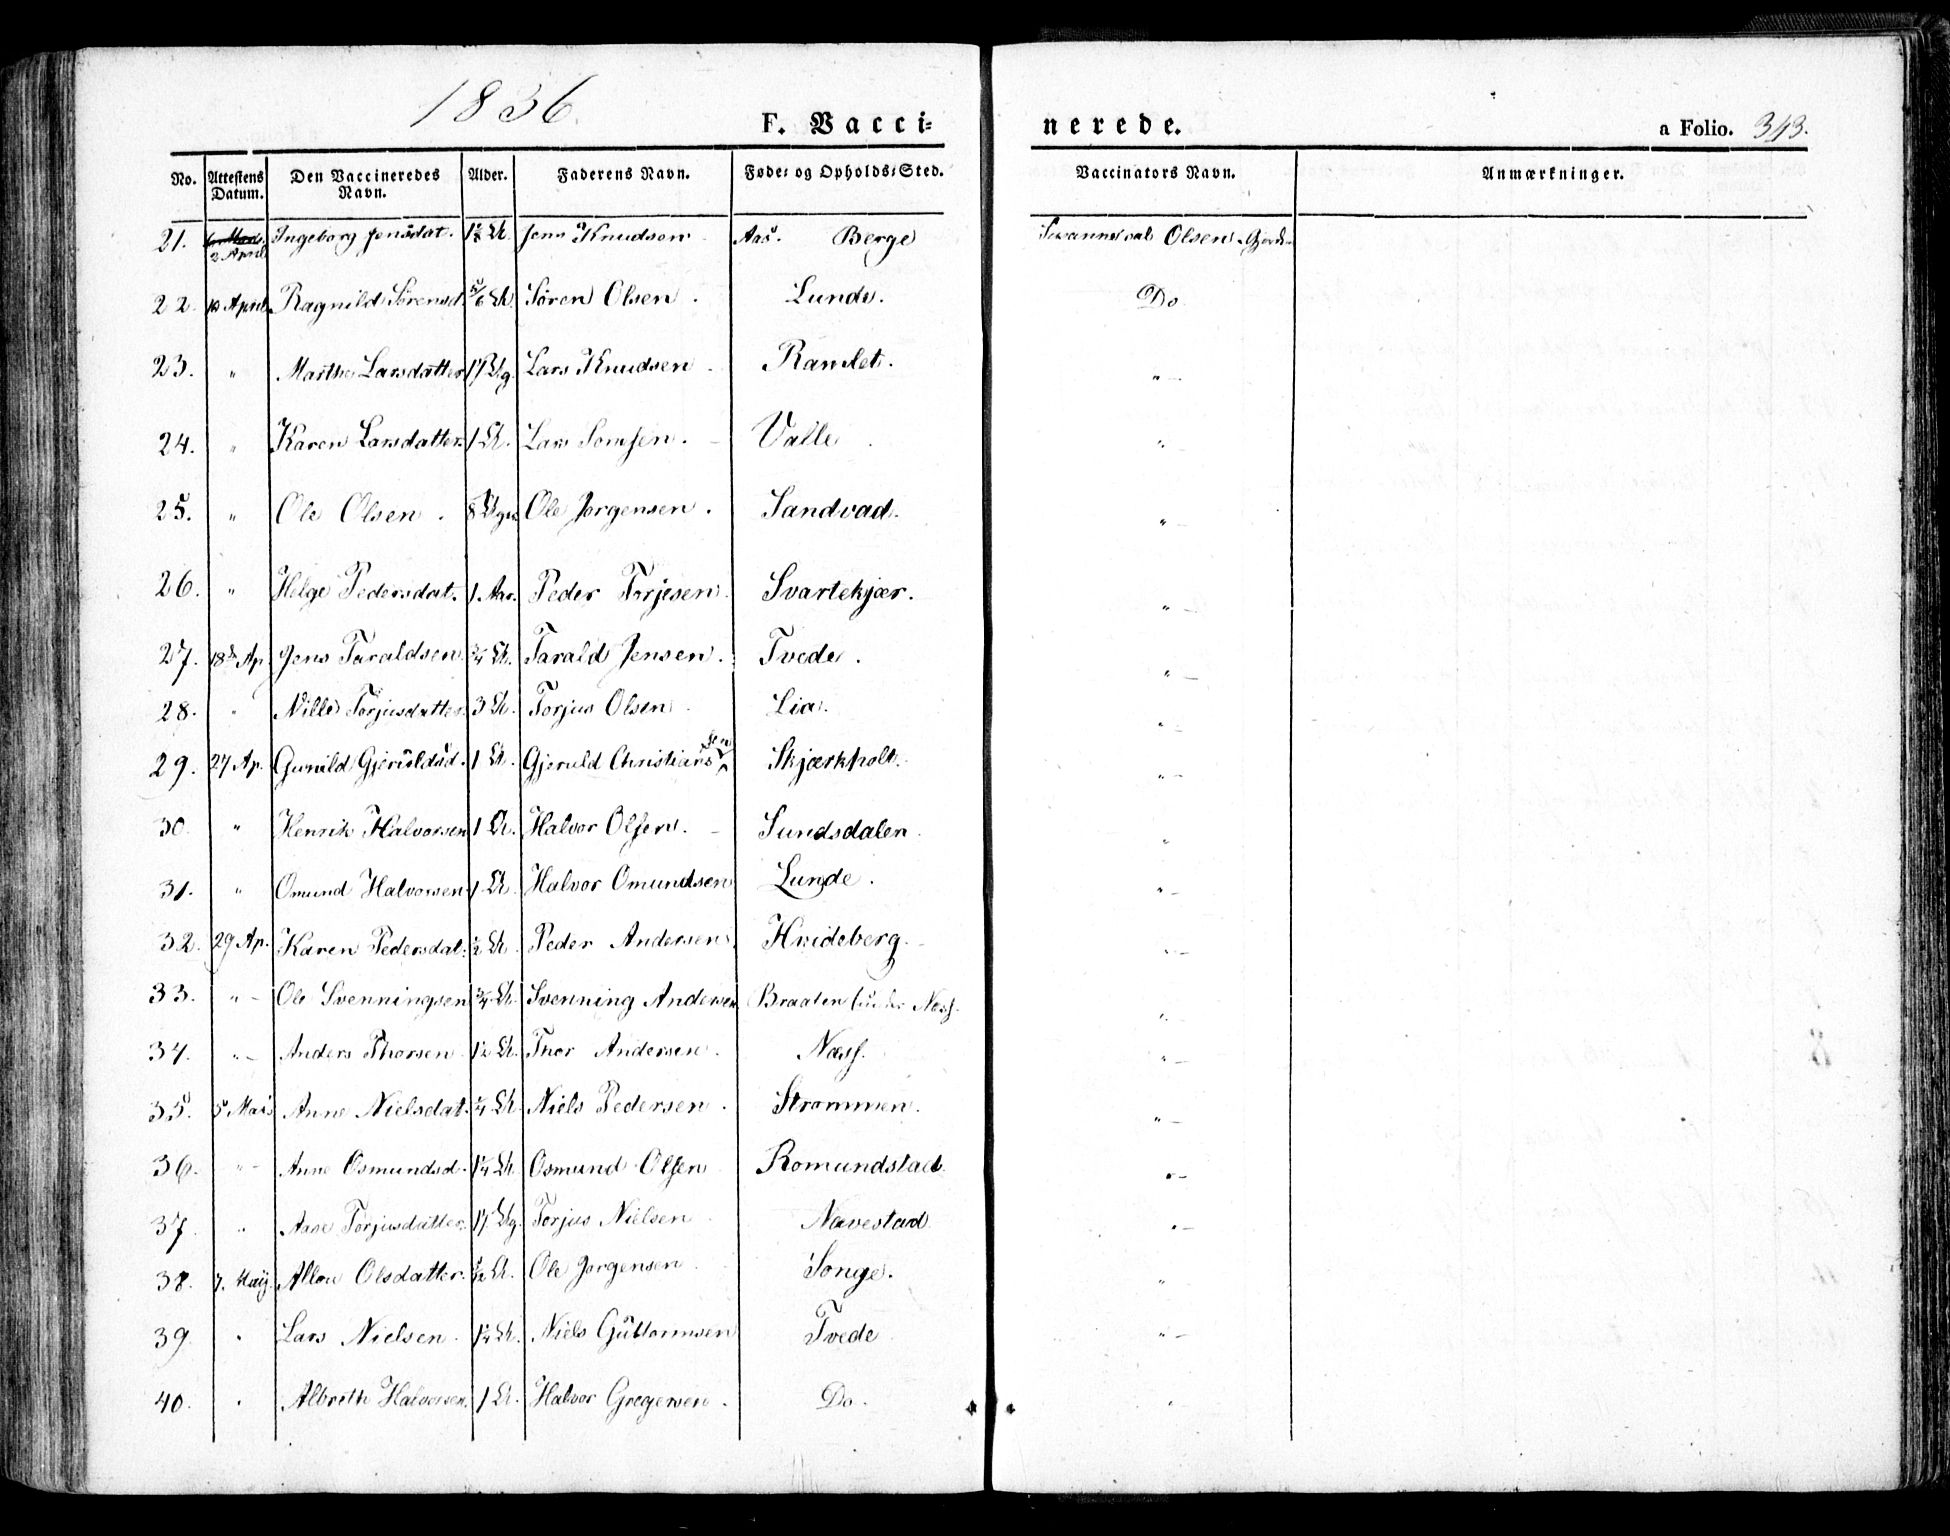 1836.
F. Vacci=
nerede.
a Folio. 343.
No. Attestens Datum. Den Vaccineredes Navn. Alder. Faderens Navn. Føde= og Opholds=Sted. Vaccinators Navn. Anmærkninger.
21. 2 April Ingeborg Jensdat. Jens Knudsen Aas. Berge Olsen
22. 12 April Ragnild Sørensd. 5/6 Søren Olsen. Lunde. Do
23. " Marthe Larsdatter 17 Lars Knudsen Ramlet. " –
24. " Karen Larsdatter 1 Lars Valle " –
25. " Ole Olsen. 8 Ole Jørgensen. Sandvad. " –
26. " Helge Pedersdat. 1. Aar. Peder Torjesen. Svartekjær. " –
27. 18de Ap. Jens Taraldsen 3/4 Tarald Jensen. Tvede. " –
28. " Nille Torjusdatter 3 Torjus Olsen Lia. " –
29. 27 Ap. Gunild Gjeruldsd. 1 Gjeruld Christiansen Skjærkholt. " –
30. " Henrik Halvorsen 1 Halvor Olsen. Sundsdalen. " –
31. " Omund Halvorsen 1 Halvor Omundsen Lunde. " –
32. 29 Ap. Karen Pedersdat. 1/2 Peder Andersen. Hvideberg. " –
33. " – Ole Svenningsen 3/4 Svenning Andersen Braaten under Næss. " –
34. " – Anders Thorsen 1 1/2 Thor Andersen. Næss. " –
35. 5 Mai Anne Nielsdat. Niels Pedersen. Strømmen. " –
36. " – Anne Osmundsd. 1 1/4 Osmund Olsen Romundstad. " –
37. " Aase Torjusdatter 17 Torjus Nielsen Navestad. " –
38. 7. Maij. Olsdatter. Ole Jørgensen Songe. "
39. " Lars Nielsen. 1 1/4 Niels Guttormsen Tvede " –
40. " Albreth Halvorsen. 1 Halvor Gregersen. Do. "